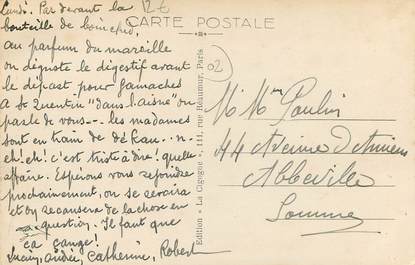 Lundi. Par devant la
bouteille de
au parfum du marseille
on déguste le digestif avant
le départ pour Gamaches
a St Quentin "dans l'aisne" on
parle de vous --- les madames
sont en train de
eh! eh! c'est triste à dire! quelle
affaire. Espérons vous rejoindre
prochainement, on se reverra
et on recausera de la chose en
question. Il faut que
ça change!
Catherine, Robert
12 €
CARTE POSTALE
02
Edition "La Cigogne", 111, rue Réaumur, Paris
M. Mme Poulin
44 Avenue d'Amiens
Abbeville
Somme